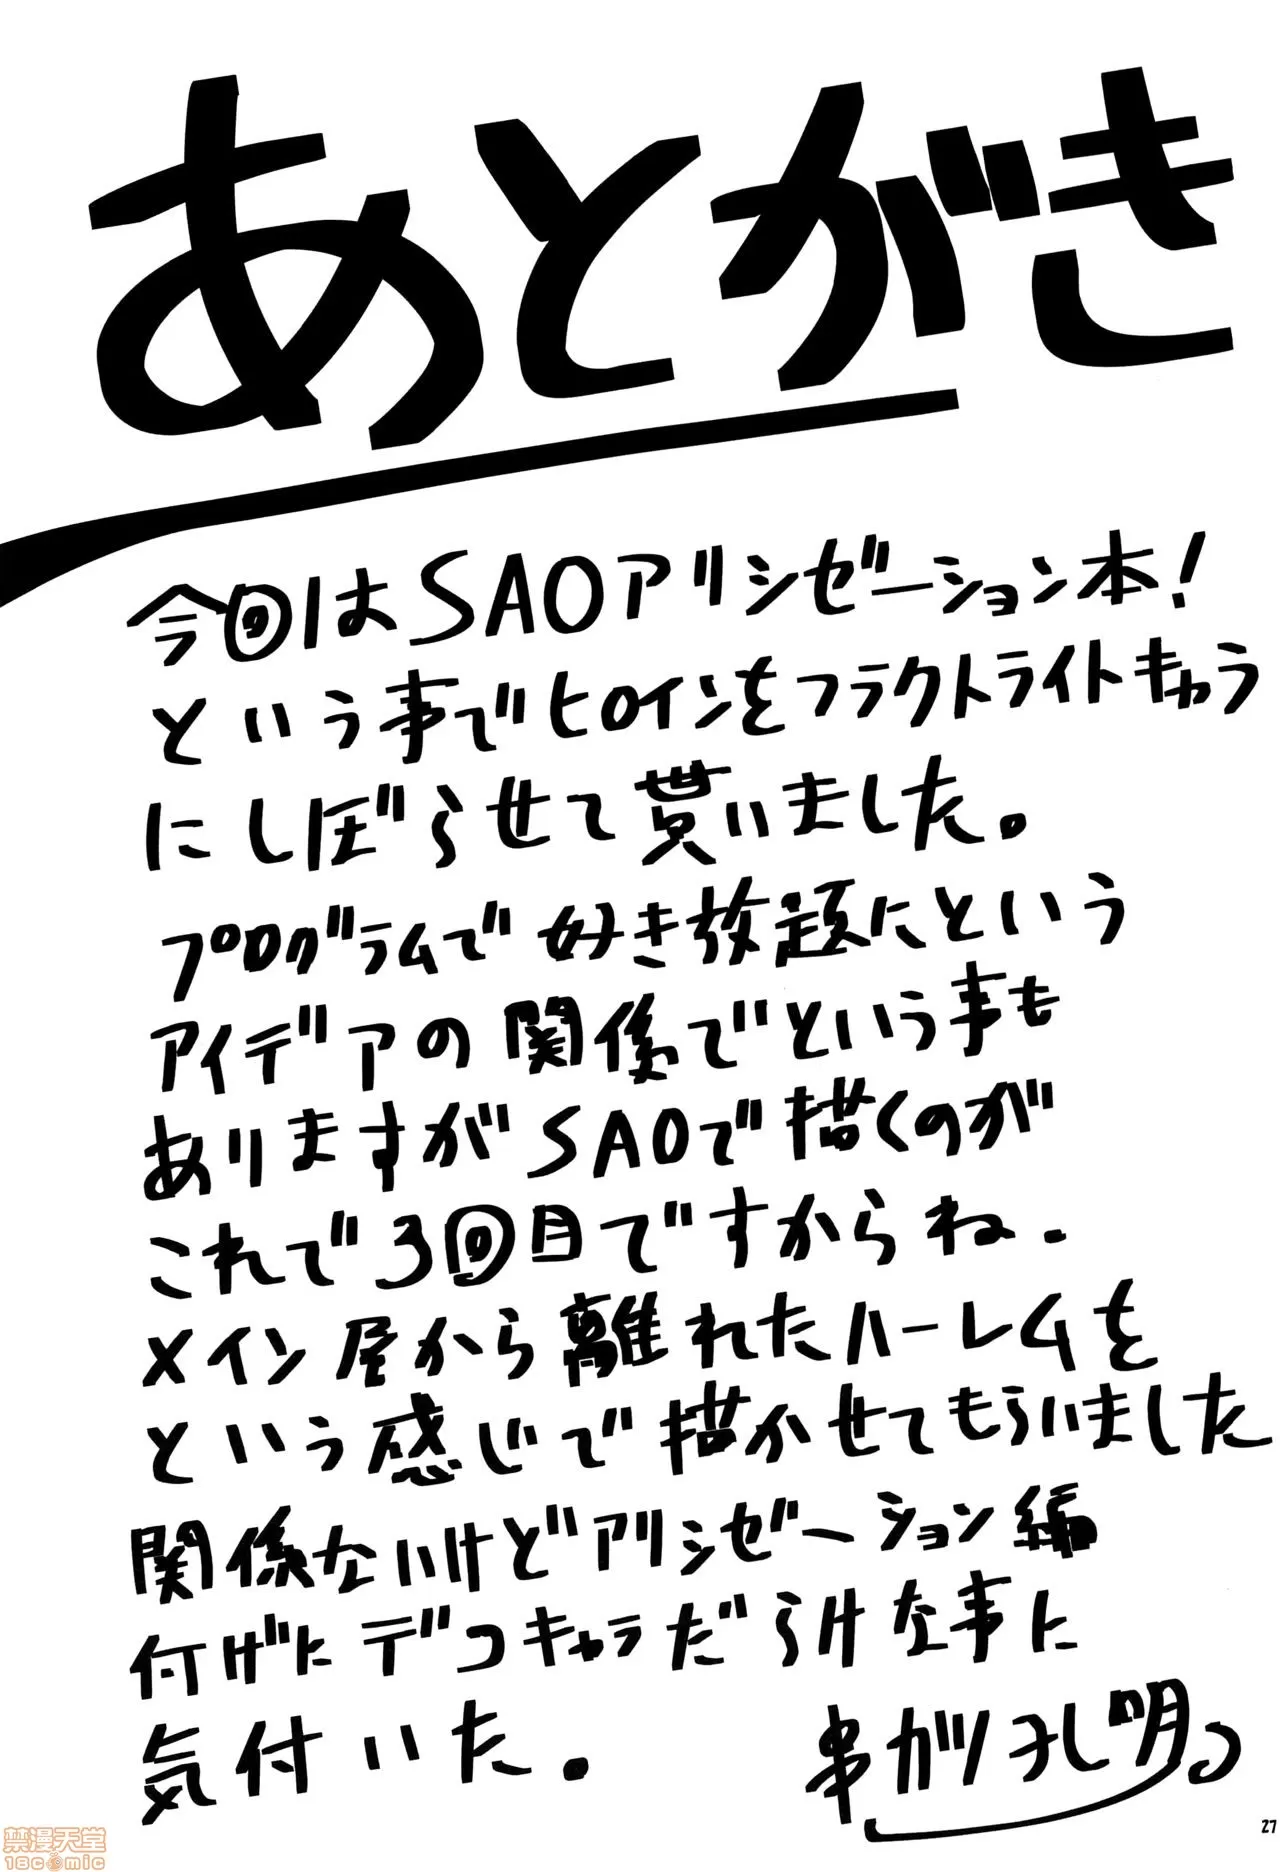 あとがき
今回はSAOアリシゼーション本！
という事でヒロインをフラクトライトキャラ
にしぼらせて貰いました。
プログラムで好き放題にという
アイデアの関係でという事も
ありますがSAOで描くのが
これで3回目ですからね.
メイン屋から離れたハーレムを
という感じで描かせてもらいました
関係ないけどアリシゼーション編
付げにデコキャラだらけな事に
気付いた。
串ガリ孔明
27
禁漫天堂
18comic